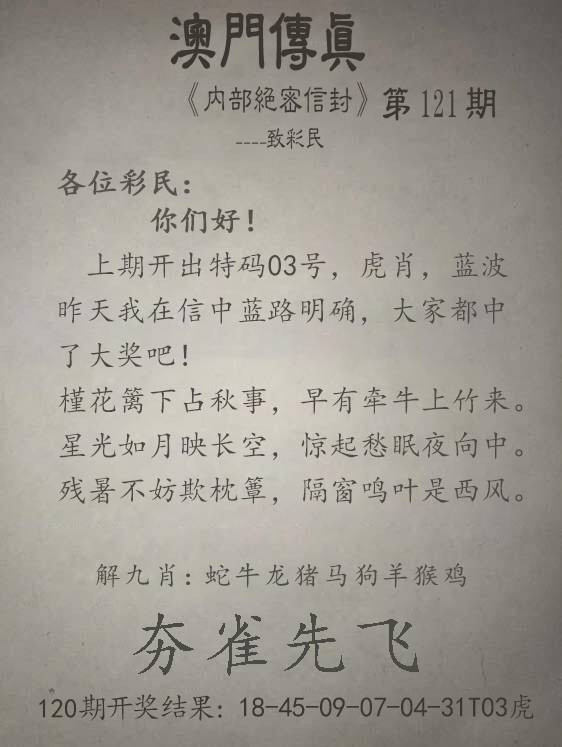 澳門傳眞
《内部絕密信封》第121期
----致彩民
各位彩民：
你们好！
上期开出特码03号，虎肖，蓝波
昨天我在信中蓝路明确，大家都中
了大奖吧！
槿花篱下占秋事，早有牵牛上竹来。
星光如月映长空，惊起愁眠夜向中。
残暑不妨欺枕簟，隔窗鸣叶是西风。
解九肖：蛇牛龙猪马狗羊猴鸡
夯雀先飞
120期开奖结果：18-45-09-07-04-31T03虎